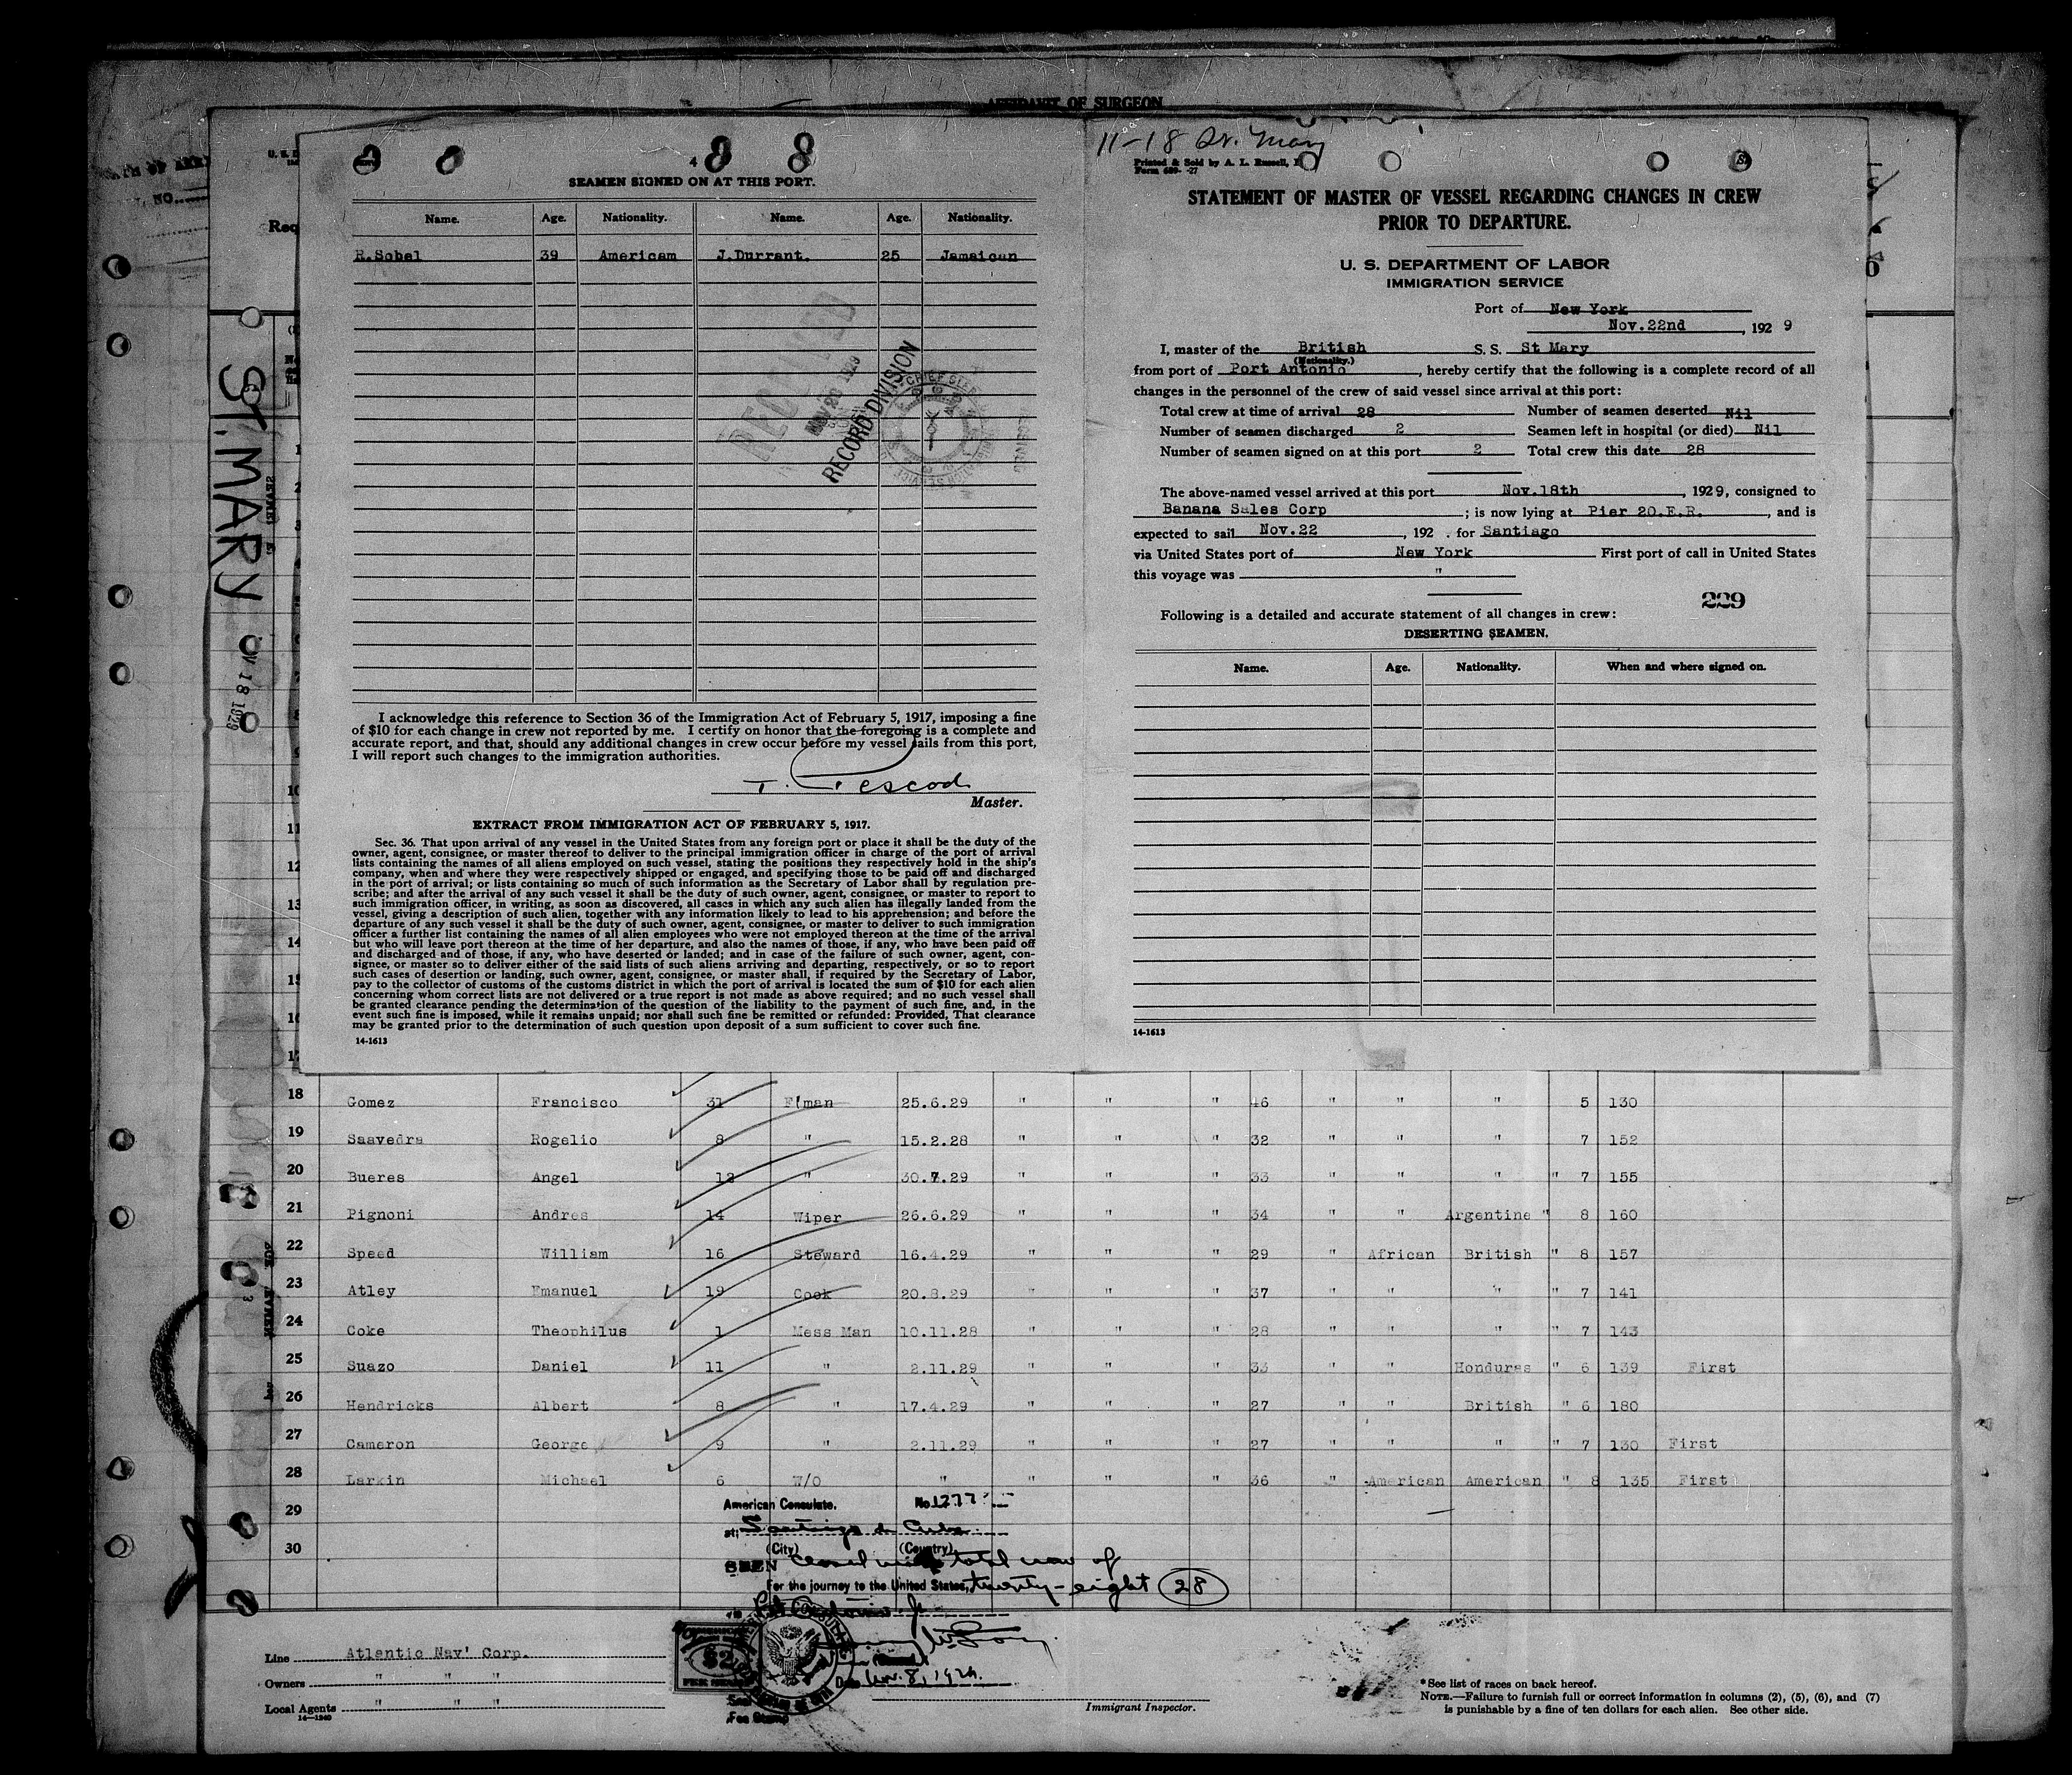 AFFIDAVIT OF SURGEON
4 8 8
SEAMEN SIGNED ON AT THIS PORT.
Name. Age. Nationality. Name. Age. Nationality.
R.Sobel 39 American J.Durrant. 25 Jamaican
RECEIVED
1929
RECORD DIVISION
I acknowledge this reference to Section 36 of the Immigration Act of February 5, 1917, imposing a fine
of $10 for each change in crew not reported by me. I certify on honor that the foregoing is a complete and
accurate report, and that, should any additional changes in crew occur before my vessel sails from this port,
I will report such changes to the immigration authorities.
T. Pescod
Master.
EXTRACT FROM IMMIGRATION ACT OF FEBRUARY 5, 1917.
Sec. 36. That upon arrival of any vessel in the United States from any foreign port or place it shall be the duty of the
owner, agent, consignee, or master thereof to deliver to the principal immigration officer in charge of the port of arrival
lists containing the names of all aliens employed on such vessel, stating the positions they respectively hold in the ship's
company, when and where they were respectively shipped or engaged, and specifying those to be paid off and discharged
in the port of arrival; or lists containing so much of such information as the Secretary of Labor shall by regulation pre-
scribe; and after the arrival of any such vessel it shall be the duty of such owner, agent, consignee, or master to report to
such immigration officer, in writing, as soon as discovered, all cases in which any such alien has illegally landed from the
vessel, giving a description of such alien, together with any information likely to lead to his apprehension; and before the
departure of any such vessel it shall be the duty of such owner, agent, consignee, or master to deliver to such immigration
officer a further list containing the names of all alien employees who were not employed thereon at the time of the arrival
but who will leave port thereon at the time of her departure, and also the names of those, if any, who have been paid off
and discharged and of those, if any, who have deserted or landed; and in case of the failure of such owner, agent, con-
signee, or master so to deliver either of the said lists of such aliens arriving and departing, respectively, or so to report
such cases of desertion or landing, such owner, agent, consignee, or master shall, if required by the Secretary of Labor,
pay to the collector of customs of the customs district in which the port of arrival is located the sum of $10 for each alien
concerning whom correct lists are not delivered or a true report is not made as above required; and no such vessel shall
be granted clearance pending the determination of the question of the liability to the payment of such fine, and, in the
event such fine is imposed, while it remains unpaid; nor shall such fine be remitted or refunded: Provided, That clearance
may be granted prior to the determination of such question upon deposit of a sum sufficient to cover such fine.
14-1613
11-18 St. Mary
Printed & Sold by A. L. Russell,
STATEMENT OF MASTER OF VESSEL REGARDING CHANGES IN CREW
PRIOR TO DEPARTURE.
U. S. DEPARTMENT OF LABOR
IMMIGRATION SERVICE
Port of New York
Nov.22nd, 1929
I, master of the British S. S. St Mary
(Nationality.)
from port of Port Antonio, hereby certify that the following is a complete record of all
changes in the personnel of the crew of said vessel since arrival at this port:
Total crew at time of arrival 28 Number of seamen deserted Nil
Number of seamen discharged 2 Seamen left in hospital (or died) Nil
Number of seamen signed on at this port 2 Total crew this date 28
The above-named vessel arrived at this port Nov.18th, 1929, consigned to
Banana Sales Corp; is now lying at Pier 20.E.R., and is
expected to sail Nov.22, 192 . for Santiago
via United States port of New York First port of call in United States
this voyage was "
229
Following is a detailed and accurate statement of all changes in crew:
DESERTING SEAMEN.
Name. Age. Nationality. When and where signed on.
14-1613
ST. MARY
18 1929
18 Gomez Francisco 31 F'man 25.6.29 " " " 46 " " " 5 130
19 Saavedra Rogelio 8 " 15.2.28 " " " 32 " " " 7 152
20 Bueres Angel 12 " 30.7.29 " " " 33 " " " " 7 155
21 Pignoni Andres 14 Wiper 26.6.29 " " " 34 " " Argentine " 8 160
22 Speed William 16 Steward 16.4.29 " " " 29 " African British " 8 157
23 Atley Emanuel 19 Cook 20.8.29 " " " 37 " " " " 7 141
24 Coke Theophilus 1 Mess Man 10.11.28 " " " 28 " " " " 7 143
25 Suazo Daniel 11 " 2.11.29 " " " 33 " " Honduras " 6 139 First
26 Hendricks Albert 8 " 17.4.29 " " " 27 " " British " 6 180
27 Cameron George 9 " 2.11.29 " " " 27 " " " " 7 130 First
28 Larkin Michael 6 W/O " " " " 36 " American American " 8 135 First
29
30
American Consulate. No. 1277
at: Santiago de Cuba
(City) (Country)
SEEN vessel with total crew of
For the journey to the United States, twenty-eight (28)
Date Nov. 8, 1929.
Fee Stamp
Line Atlantic Nav' Corp.
Owners " " "
Local Agents " " "
14-1240
Immigrant Inspector.
*See list of races on back hereof.
NOTE.—Failure to furnish full or correct information in columns (2), (5), (6), and (7)
is punishable by a fine of ten dollars for each alien. See other side.